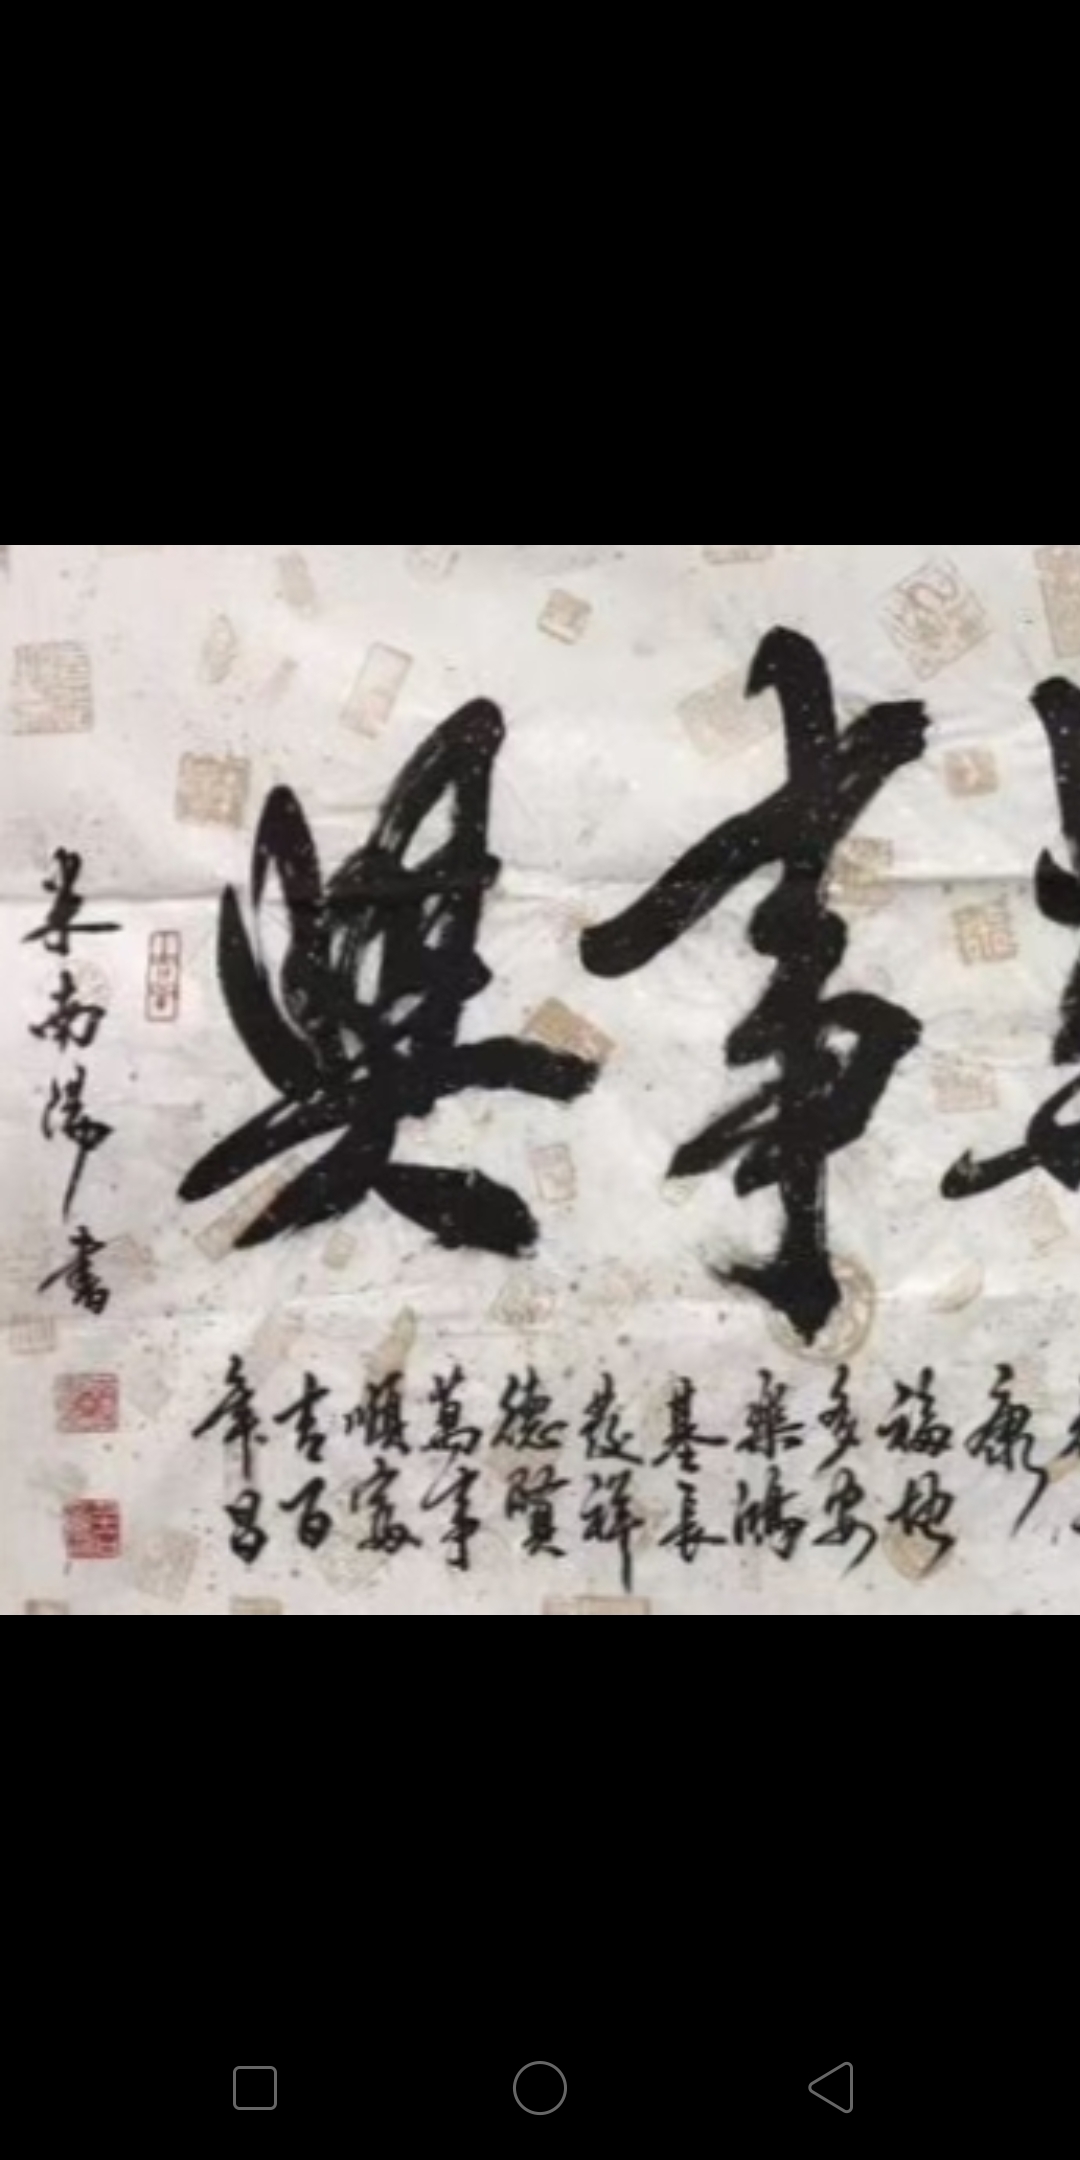 事興
康
福地
多安
樂鴻
基長
發祥
德賢
萬事
順家
吉百
年昌
米南陽書